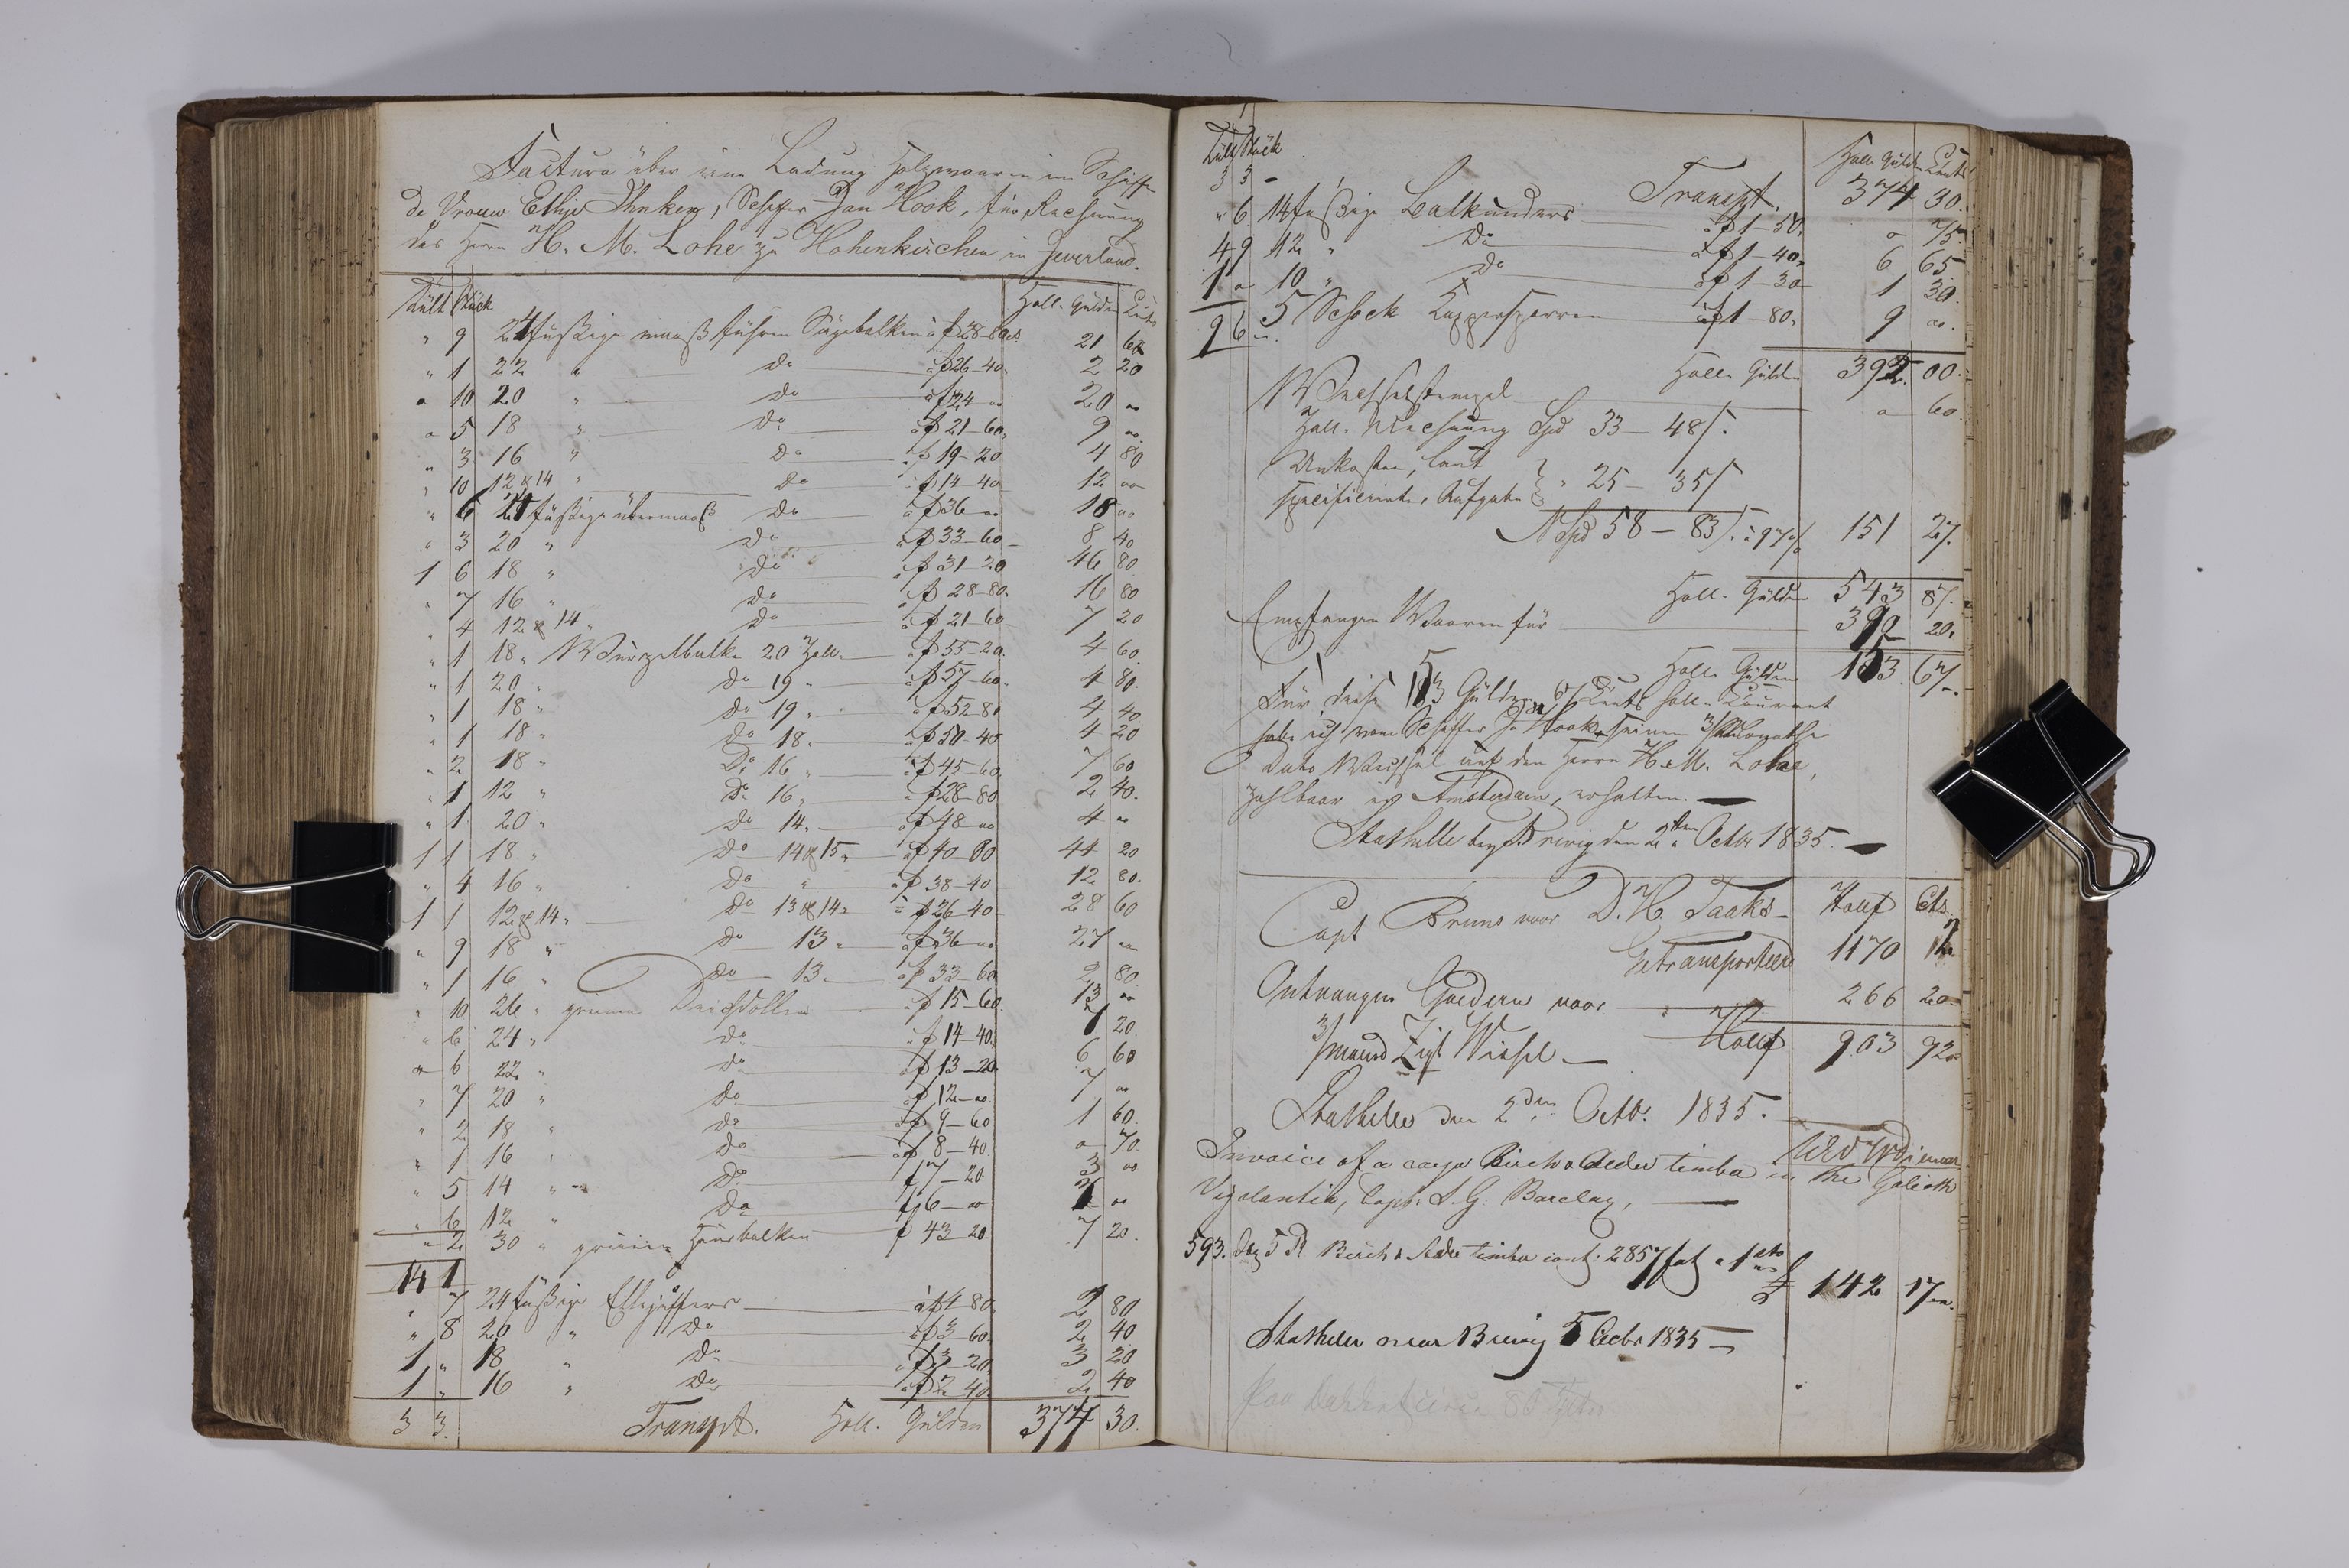 Factura über eine Ladung Holzwaaren im Schiffe
de Vrouw Ethje Ihnken, Schiffer Jan Hook, für Rechnung
des Herrn H. M. Lohe zu Hohenkirchen in Jeverland.
Tült Stück Holl. Gulden Cents
" 9 24 füßige maaß führen Sägebalken à f 28-80 cs 21 60
" 1 22 " do à f 26-40 2 20
" 10 20 " do à f 24 " 20 "
" 5 18 " do à f 21-60 9 "
" 3 16 " do à f 19-20 4 80
" 10 12 & 14 " do à f 14-40 12 "
" 6 24 füßige übermaaß do à f 36 " 18 "
" 3 20 " do à f 33-60 8 40
1 6 18 " do à f 31-20 46 80
" 7 16 " do à f 28-80 16 80
" 4 12 & 14 " do à f 21-60 7 20
" 1 18 " Würzelbalke 20 Zoll à f 55-20 4 60
" 1 20 " do 19 " à f 57-60 4 80
" 1 18 " do 19 " à f 52-80 4 40
" 1 18 " do 18 " à f 50-40 4 20
" 2 18 " Do 16 " à f 45-60 7 60
" 1 12 " do 16 " à f 28-80 2 40
" 1 20 " do 14 " à f 48 " 4 "
1 1 18 " do 14 & 15 " à f 40-80 44 20
" 4 16 " do " à f 38-40 12 80
1 1 12 & 14 " do 13 & 14 " à f 26-40 28 60
" 9 18 " do 13 " à f 36 " 27 "
" 1 16 " do 13 " à f 33-60 2 80
" 10 26 " grüne Deichdollen à f 15-60 13 "
" 6 24 " do à f 14-40 7 20
" 6 22 " do à f 13-20 6 60
" 7 20 " do à f 12 " 7 "
" 2 18 " do à f 9-60 1 60
" 1 16 " do à f 8-40 " 70
" 5 14 " do f 7-20 3 "
" 6 12 " do f 6 " 3 "
" 2 30 " grüne Hausbalken f 43-20 7 20
14 1
" 7 24 füßige Ellejuffers à f 4-80 2 80
" 8 20 " do à f 3-60 2 40
1 " 18 " do à f 3-20 3 20
1 " 16 " do à f 2-40 2 40
3 3 Transpt. Holl. Gulden 374 30
Tült Stück Holl. Gulden Cents
3 3 - Transpt. 374 30
" 6 14 füßige Balkunders à f 1-50 " 75
4 9 12 " do à f 1-40 6 65
1 " 10 " do à f 1-30 1 30
9 6 " 5 Schock Kappersparren à f 1-80 9 "
Holl. Gulden 392 00
Wechselstempel " 60
Zoll-Rechnung Spd 33-48 ß
Unkosten, laut
specificirte Aufgabe } " 25-35 ß
Spd 58-83 ß à 97 % 151 27
Holl. Gulden 543 87
Empfangen Waaren für 390 20
Holl. Gulden 153 67
Für diese 153 Gulden 67 Cents holl. Courant
habe ich vom Schiffer J. Hook seinen 3/Monathe
Dato Wechsel auf den Herrn H. M. Lohe,
zahlbaar in Amsterdam, erhalten.
Stathelle bey Brevig den 2ten Octbr 1835.
Capt Bruns voor D. H. Taaks Hollf Cts
Getransporteerd 1170 12
Ontvangen Goederen voor 266 20
3/maand Zigt Wissel Hollf 903 92
Stathelle den 2den Octbr 1835.
Invoice of a cargo Birch & Alder timber in the Galioth
Vigelantia, Capt. S. G. Barclay,
593. 5 Birch & Alder timber cont: 2857 fot £ 142 17 "
Stathelle near Brevig 5 Octbr 1835